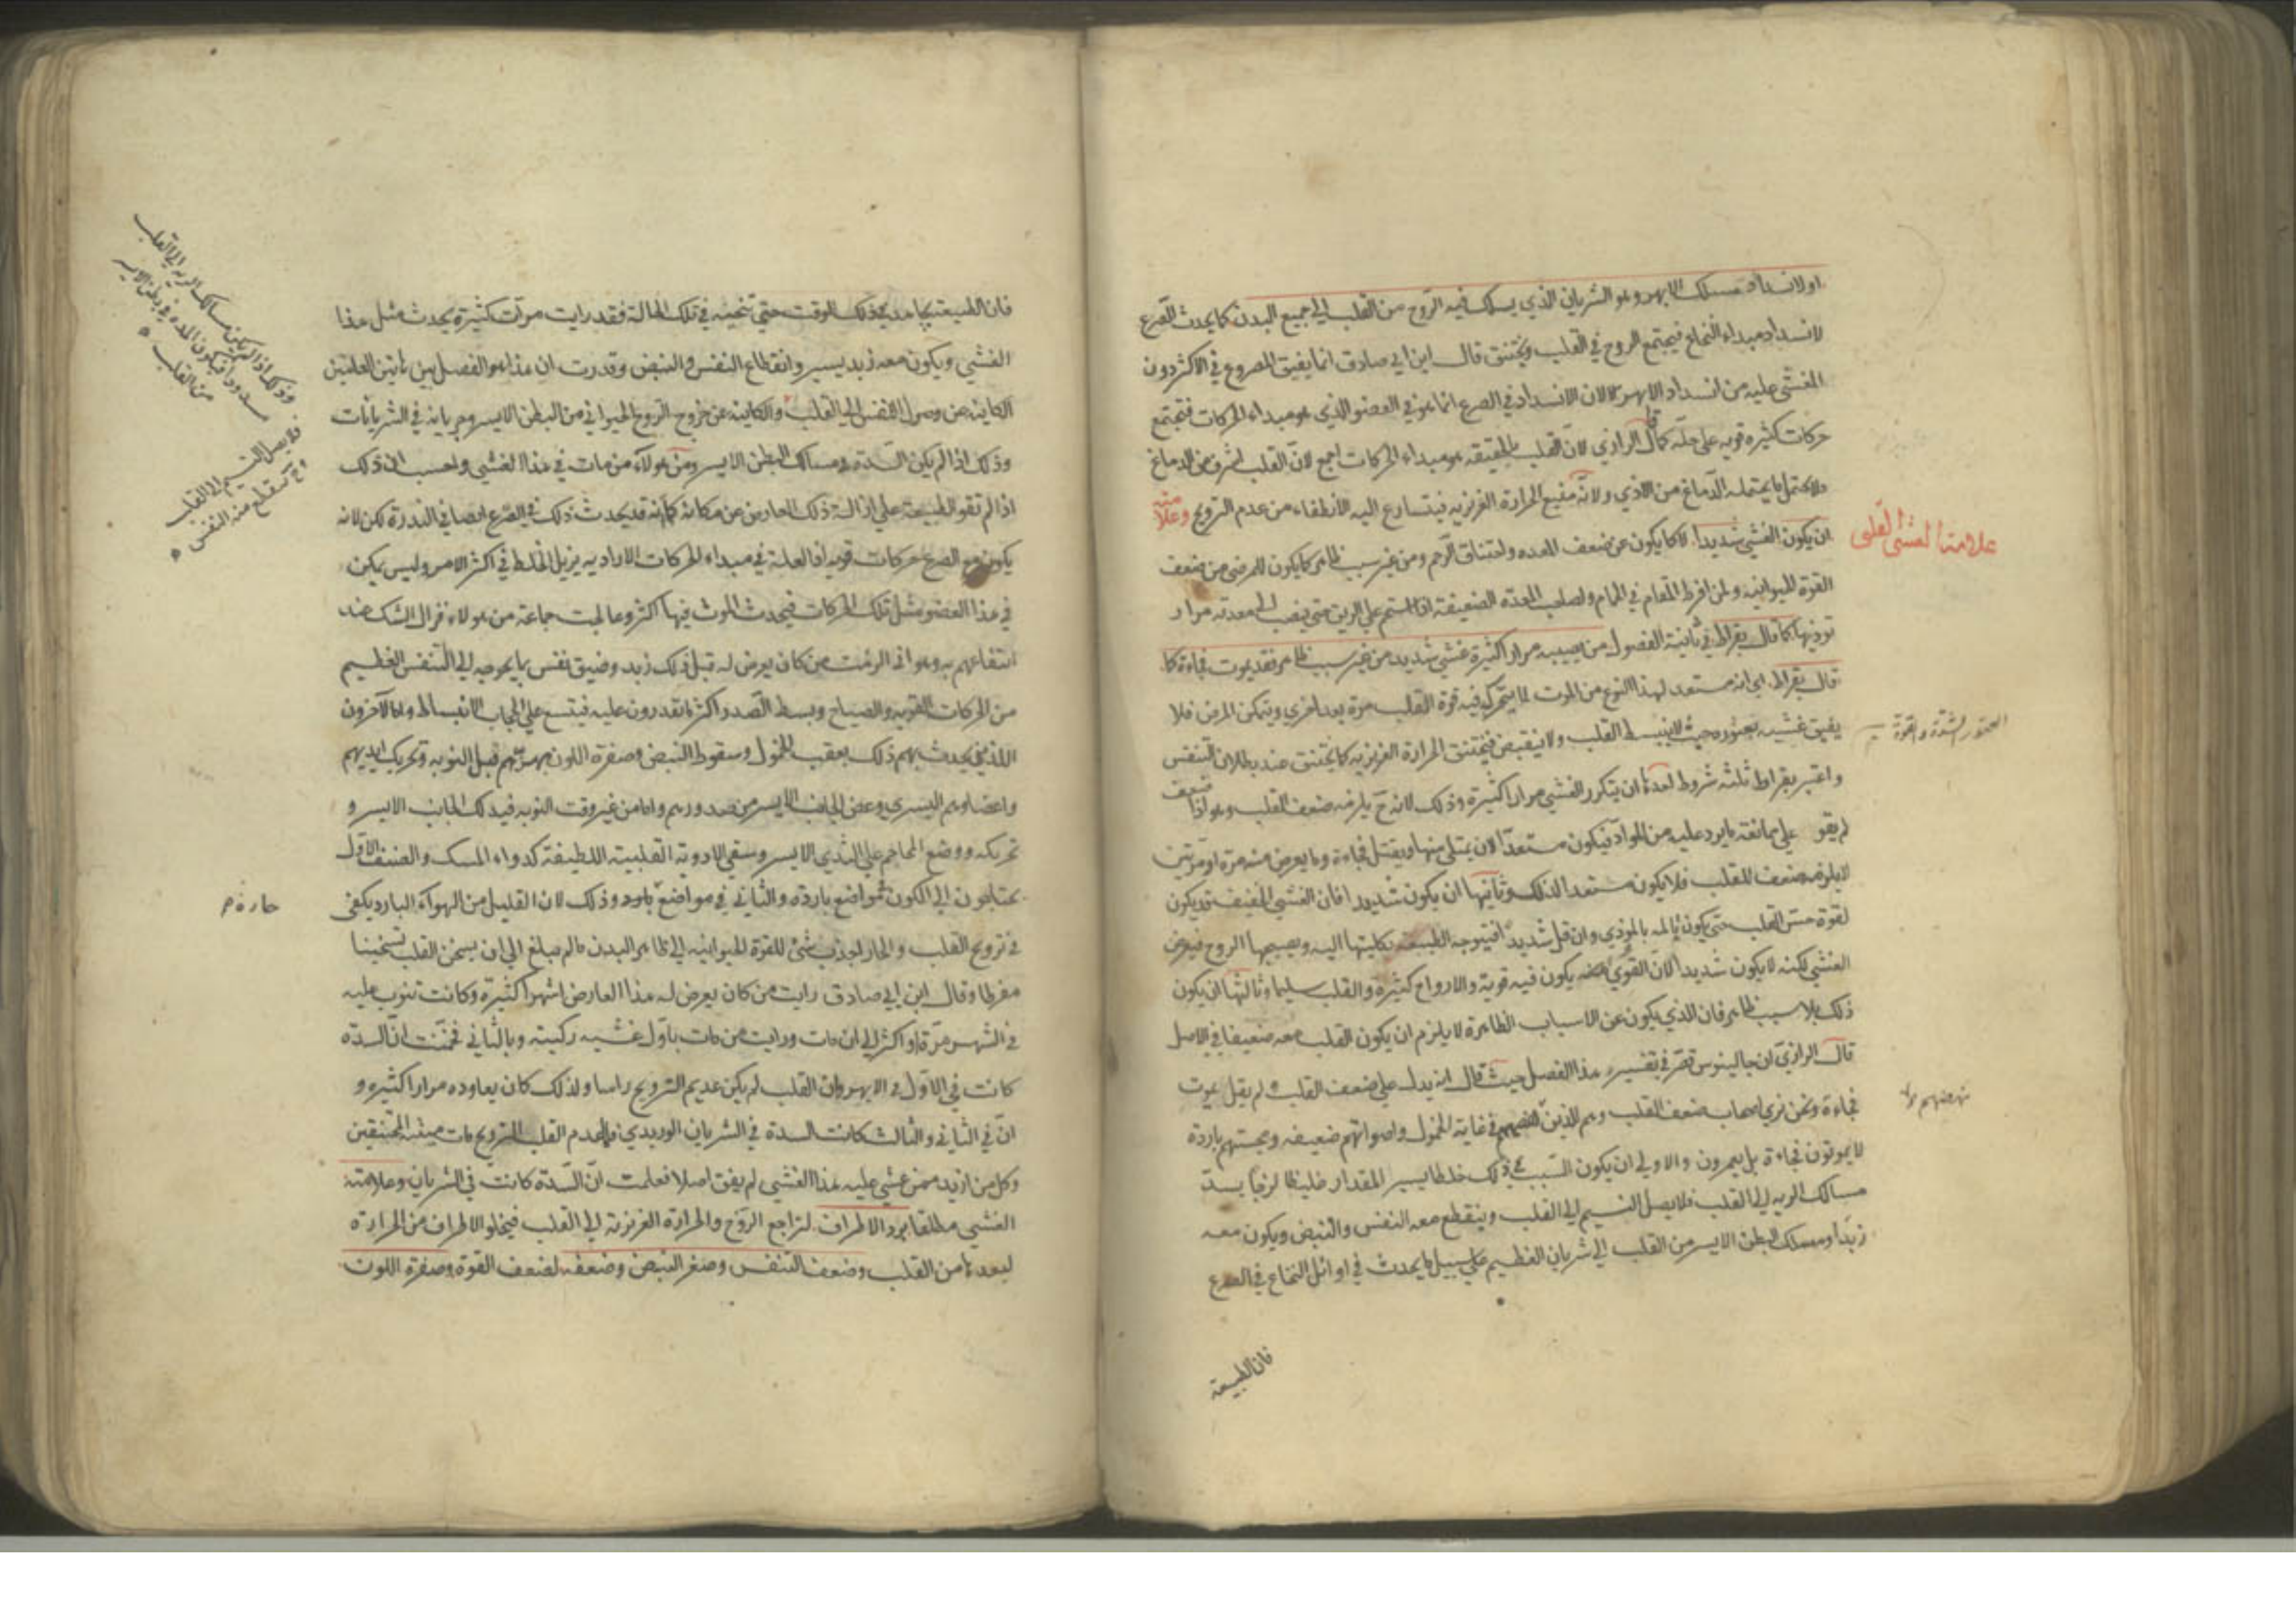 او لانسداد مسلك الابهر وهو الشريان الذي يسلك فيه الروح من القلب الي جميع البدن كما يحدث الصرع
لانسداد مبداء النخاع فيجتمع الروح في القلب ويختنق قال ابن ابي صادق انما يفيق المصروع في الاكثر دون
المغشي عليه من انسداد الابهر لان الانسداد في الصرع انما هو في العضو الذي هو مبداء الحركات فتجتمع
حركات كثيره قويه علي حله كما قال الرازي لان القلب بالحقيقه هو مبداء الحركات اجمع لان القلب اشرف من الدماغ
ولا يحتمل ما يحتمله الدماغ من الاذي ولانه منبع الحرارة الغريزيه فيتسارع اليه الانطفاء من عدم الترويح وعلامته
علامة الغشي القلبي
ان يكون الغشي شديدا لا كما يكون عن ضعف المعده واختناق الرحم ومن غير سبب ظاهر كما يكون للمرضي من ضعف
القوة الحيوانيه ولمن افرط المقام في الحمام ولصاحب المعدة الضعيفة اذا استحم علي الريق حتي ينصب الي معدته مرار
تؤذيها كما قال بقراط في ثانية الفصول من يصيبه مرارا كثيرة غشي شديد من غير سبب ظاهر فقد يموت فجاءة كما
قال بقراط اي انه مستعد لهذا النوع من الموت لما يتحرك فيه قوة القلب مرة بعد اخري ويتمكن المرض فلا
يفيق غشيه بعنوره حيث لا ينبسط القلب ولا ينقبض فتختنق الحرارة الغريزيه كما يختنق عند بطلان التنفس
واعتبر بقراط ثلثه شروط احدها ان يتكرر الغشي مرارا كثيرة وذلك لانه ح يلزمه ضعف القلب وهو اذا ضعف
لم يقو علي ممانعة ما يرد عليه من المواد فيكون مستعدا لان يمتلي منها ويقتل فجاءة وما يعرض منه مرة او مرتين
لا يلزمه ضعف القلب فلا يكون مستعدا لذلك وثانيها ان يكون شديدا فان الغشي الخفيف قد يكون
لقوة حس القلب حتي يكون تالمه بالموذي وان قل شديدا فتتوجه الطبيعه بكليتها اليه ويصحبها الروح فيعرض
الغشي لكنه لا يكون شديدا لان القوي فيه يكون فيه قوية والارواح كثيره والقلب سليما وثالثها ان يكون
ذلك بلا سبب ظاهر فان الذي يكون عن الاسباب الظاهرة لا يلزم ان يكون القلب معه ضعيفا في الاصل
قال الرازي ان جالينوس قصر في تفسير هذا الفصل حيث قال انه يدل علي ضعف القلب ولم يقل يموت
فجاءة ونحن نري اصحاب ضعف القلب وهم الذين نبضهم في غاية الخمول واصواتهم ضعيفه ومجستهم باردة
لا يموتون فجاءة بل يعمرون والاولي ان يكون السبب في ذلك خلطا يسير المقدار غليظا لزجا يسد
مسالك الريه الي القلب فلا يصل النسيم الي القلب وينقطع معه النفس والنبض ويكون معه
زبد او مسلك البطن الايسر من القلب الي شريان العظيم علي سبيل ما يحدث في اوائل النخاع في الصرع
فان الطبيعة
فان الطبيعة تجاهد في ذلك الوقت حتي تنحيه في تلك الحالة فقد رايت مرات كثيرة يحدث مثل هذا
الغشي ويكون معه زبد يسير وانقطاع النفس والنبض وقدرت ان هذا هو الفصل بين هاتين العلتين
الكاينة عن وصول النفس الي القلب والكاينة عن خروج الروح الحيواني من البطن الايسر وجريانه في الشريانات
وذلك اذا لم يكن السدة في مسالك البطن الايسر ومن هولاء من مات في هذا الغشي واحسب ان ذلك
اذا لم تقو الطبيعة علي ازالة ذلك العارض عن مكانه كما انه قد يحدث ذلك في الصرع ايضا في الندرة لكن لانه
يكون مع الصرع حركات قويه اذ العلة في مبداء الحركات الاراديه يزيل الخلط في اكثر الامر وليس يمكن
في هذا العضو مثل تلك الحركات فيحدث الموت فيها اكثر وعالجت جماعة من هولاء فزال الشك عند
انتفاعهم به وهو اني الزمت من كان يعرض له قبل ذلك زبد وضيق نفس بما يحوجه الي التنفس العظيم
من الحركات القويه والصياح وبسط الصدر اكثر ما يقدرون عليه فيتسع علي الحجاب الانبساط واما الاخرون
اللذين يحدث بهم ذلك بعقب الخمول وسقوط النبض وصفرة اللون قبل النوبه وتحريك ايديهم
واعضاءهم اليسري وعض الجانب الايسر من صدورهم واما من غير وقت النوبه فبدلك الجانب الايسر و
تحريكه ووضع المحاجم علي الثدي الايسر وسقي الادوية القلبية اللطيفة كدواء المسك والصنف الاول
يحتاجون الي الكون في مواضع بارده والثاني في مواضع حارة م وذلك لان القليل من الهواء البارد يكفي
في ترويح القلب والحار اجذب شئ للقوة الحيوانيه الي ظاهر البدن ما لم يبلغ الي ان يسخن القلب تسخينا
مفرطا وقال ابن ابي صادق رايت من كان يعرض له هذا العارض اشهرا كثيرة وكانت تنوب عليه
في الشهر مرة او اكثر الي ان مات ورايت من مات باول غشيه ركبته وبالثاني فخمنت ان السدة
كانت في الاول في الابهر وان القلب لم يكن عديم الترويح راسا ولذلك كان يعاوده مرارا كثيره و
ان في الثاني والثالث كانت السدة في الشريان الوريدي فلعدم القلب الترويح مات ميتة المختنقين
وكل من ازبد ممن غشي عليه هذا الغشي لم يفق اصلا فعلمت ان السدة كانت في الشريان وعلامة
الغشي مطلقا برد الاطراف لتراجع الروح والحرارة الغريزية الي القلب فيخلو الاطراف من الحرارة
لبعدها من القلب وضعف التنفس وصغر النبض وضعفه لضعف القوة وصفرة اللون
وذلك اذا لم يكن مسالك الريه الي القلب
مسدودا فيكون المدة في بطن الايسر
من القلب
فلا يصل النسيم الي القلب
ينقطع منه النفس